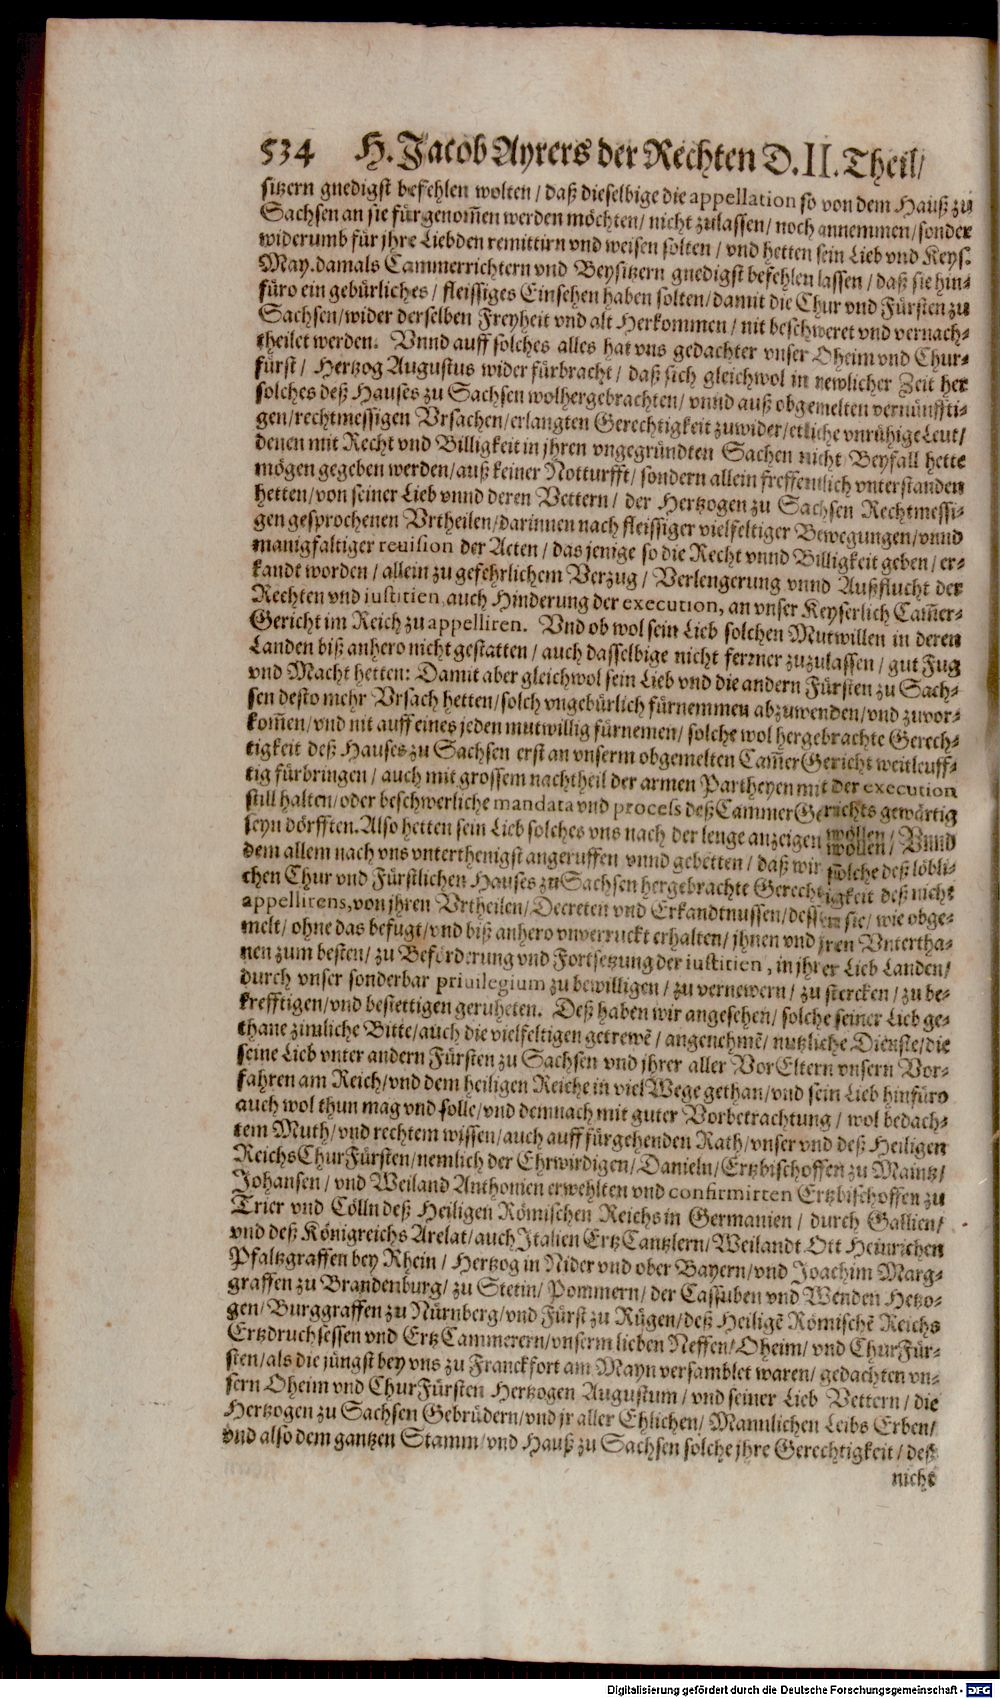 534 H. Jacob Ayrers der Rechten D. II. Theil/
sitzern gnedigst befehlen wolten / daß dieselbige die appellation so von dem Hauß zu
Sachsen an sie fürgenom̃en werden möchten / nicht zulassen / noch annemmen / sonder
widerumb für jhre Liebden remittirn vnd weisen solten / vnd hetten sein Lieb vnd Keys.
May. damals Cammerrichtern vnd Beysitzern gnedigst befehlen lassen / daß sie hin-
füro ein gebürliches / fleissiges Einsehen haben solten / damit die Chur vnd Fürsten zu
Sachsen / wider derselben Freyheit vnd alt Herkommen / nit beschweret vnd vernach-
theilet werden. Vnnd auff solches alles hat vns gedachter vnser Oheim vnd Chur-
fürst / Hertzog Augustus wider fürbracht / daß sich gleichwol in newlicher Zeit her
solches deß Hauses zu Sachsen wolhergebrachten / vnnd auß obgemelten vernünffti-
gen / rechtmessigen Vrsachen / erlangten Gerechtigkeit zuwider / etliche vnrühige Leut /
denen mit Recht vnd Billigkeit in jhren vngegründten Sachen nicht Beyfall hette
mögen gegeben werden / auß keiner Notturfft / sondern allein freffentlich vnterstanden
hetten / von seiner Lieb vnnd deren Vettern / der Hertzogen zu Sachsen Rechtmessi-
gen gesprochenen Vrtheilen / darinnen nach fleissiger vielfeltiger Bewegungen / vnnd
manigfaltiger reuision der Acten / das jenige so die Recht vnnd Billigkeit geben / er-
kandt worden / allein zu gefehrlichem Verzug / Verlengerung vnnd Außflucht der
Rechten vnd iustitien, auch Hinderung der execution, an vnser Keyserlich Cam̃er-
Gericht im Reich zu appelliren. Vnd ob wol sein Lieb solchen Mutwillen in deren
Landen biß anhero nicht gestatten / auch dasselbige nicht ferrner zuzulassen / gut Fug
vnd Macht hetten: Damit aber gleichwol sein Lieb vnd die andern Fürsten zu Sach-
sen desto mehr Vrsach hetten / solch vngebürlich fürnemmen abzuwenden / vnd zuvor-
kom̃en / vnd nit auff eines jeden mutwillig fürnemen / solche wol hergebrachte Gerech-
tigkeit deß Hauses zu Sachsen erst an vnserm obgemelten Cam̃erGericht weitleuff-
tig fürbringen / auch mit grossem nachtheil der armen Partheyen mit der execution
still halten / oder beschwerliche mandata vnd process deß CammerGerichts gewärtig
seyn dörfften. Also hetten sein Lieb solches vns nach der lenge anzeigen wöllen / Vnnd
dem allem nach vns vnterthenigst angeruffen vnnd gebetten / daß wir solche deß löbli-
chen Chur vnd Fürstlichen Hauses zu Sachsen hergebrachte Gerechtigkeit deß nicht
appellirens, von jhren Vrtheilen / Decreten vnd Erkandtnussen / dessen sie / wie obge-
melt / ohne das befugt / vnd biß anhero vnverruckt erhalten / jhnen vnd jren Vntertha-
nen zum besten / zu Beförderung vnd Fortsetzung der iustitien, in jhrer Lieb Landen /
durch vnser sonderbar priuilegium zu bewilligen / zu vernewern / zu stercken / zu be-
krefftigen / vnd bestettigen geruheten. Deß haben wir angesehen / solche seiner Lieb ge-
thane zimliche Bitte / auch die vielfeltigen getrewẽ / angenehmẽ / nutzliche Dienste / die
seine Lieb vnter andern Fürsten zu Sachsen vnd jhrer aller VorEltern vnsern Vor-
fahren am Reich / vnd dem heiligen Reiche in viel Wege gethan / vnd sein Lieb hinfüro
auch wol thun mag vnd solle / vnd demnach mit guter Vorbetrachtung / wol bedach-
tem Muth / vnd rechtem wissen / auch auff fürgehenden Rath / vnser vnd deß Heiligen
Reichs ChurFürsten / nemlich der Ehrwirdigen / Danieln / Ertzbischoffen zu Maintz /
Johansen / vnd Weiland Anthonien erwehlten vnd confirmirten Ertzbischoffen zu
Trier vnd Cölln deß Heiligen Römischen Reichs in Germanien / durch Gallien /
vnd deß Königreichs Arelat / auch Italien ErtzCantzlern / Weilandt Ott Heinrichen
Pfaltzgraffen bey Rhein / Hertzog in Nider vnd ober Bayern / vnd Joachim Marg-
graffen zu Brandenburg / zu Stetin / Pommern / der Cassuben vnd Wenden Hetzo-
gen / Burggraffen zu Nürnberg / vnd Fürst zu Rügen / deß Heiligẽ Römischẽ Reichs
Ertzdruchsessen vnd ErtzCammerern / vnserm lieben Neffen / Oheim / vnd ChurFür-
sten / als die jüngst bey vns zu Franckfort am Mayn versamblet waren / gedachten vn-
sern Oheim vnd ChurFürsten Hertzogen Augustum / vnd seiner Lieb Vettern / die
Hertzogen zu Sachsen Gebrüdern / vnd jr aller Ehlichen / Mannlichen Leibs Erben /
vnd also dem gantzen Stamm / vnd Hauß zu Sachsen solche jhre Gerechtigkeit / deß
nicht
Digitalisierung gefördert durch die Deutsche Forschungsgemeinschaft - DFG